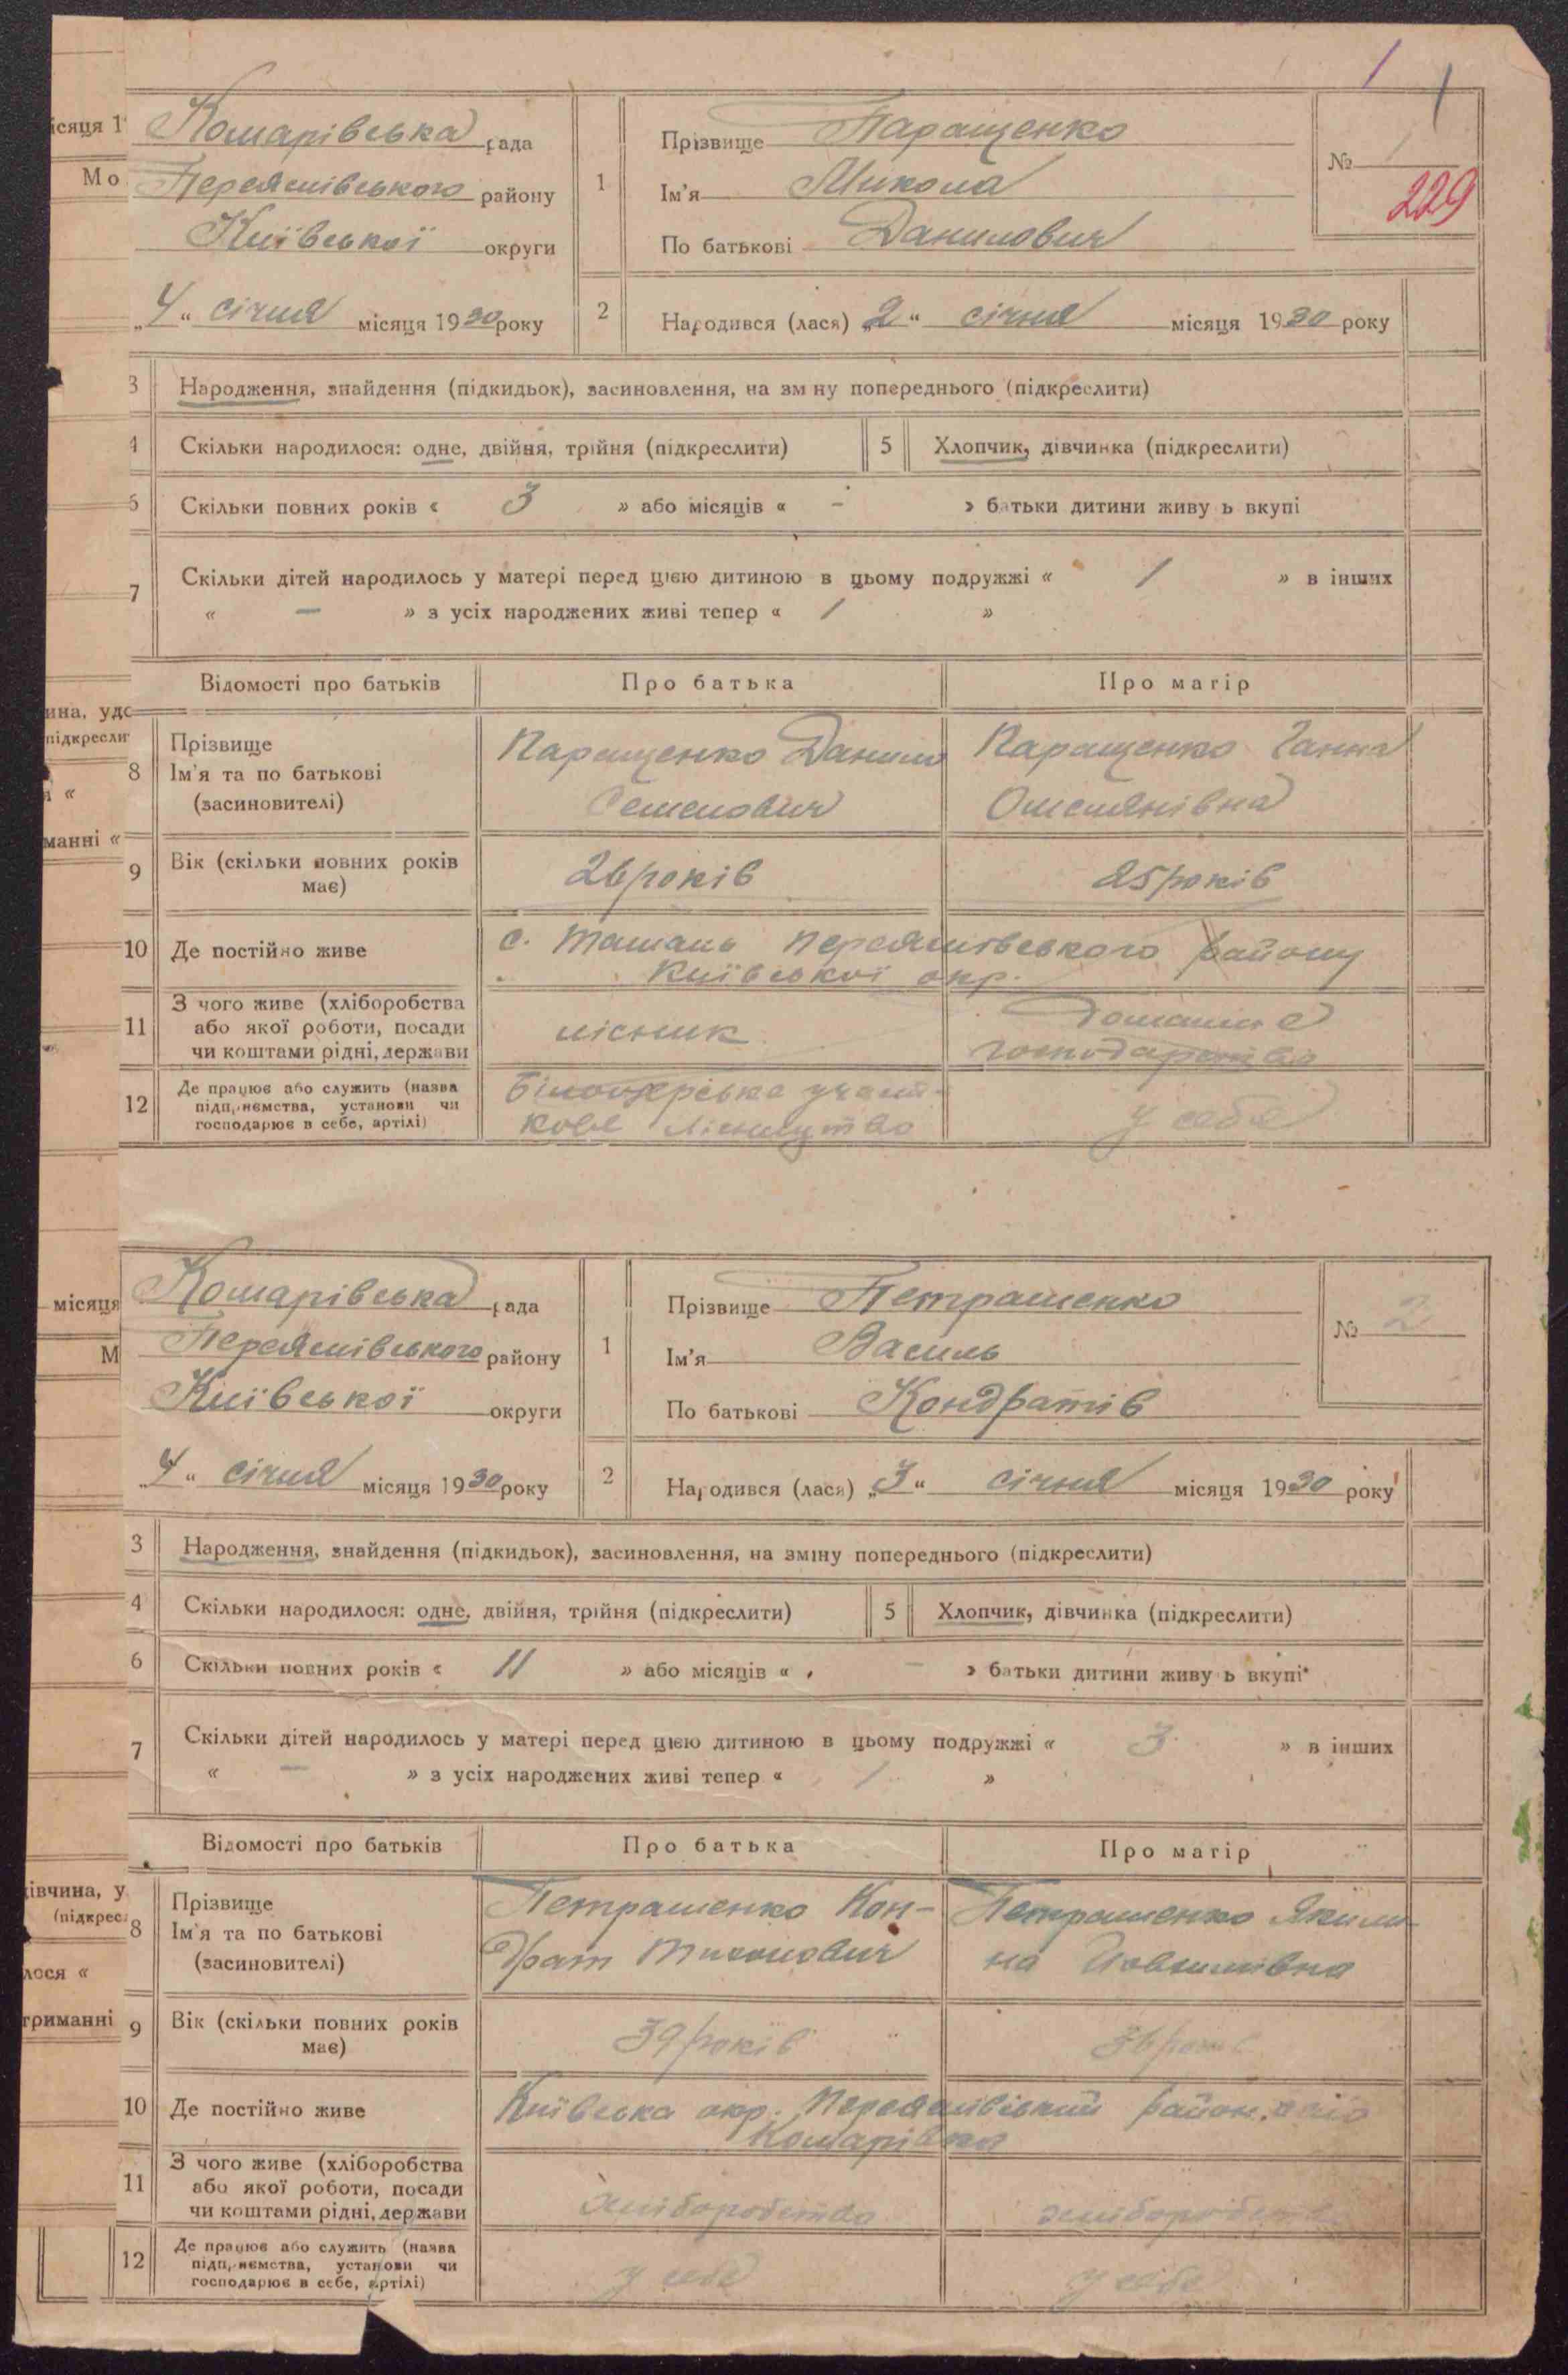 1
1
ісяця 1
Мо
Комарівська рада
Переяслівського району
Київської округи
„4“ січня місяця 1930 року
1 Прізвище Паращенко
Ім'я Микола
По батькові Данилович
№ 1
229
2 Народився (лася) „2“ січня місяця 1930 року
3 Народження, знайдення (підкидьок), засиновлення, на зм ну попереднього (підкреслити)
4 Скільки народилося: одне, двійня, трійня (підкреслити) 5 Хлопчик, дівчинка (підкреслити)
6 Скільки повних років « 3 » або місяців « - » батьки дитини живу ь вкупі
7 Скільки дітей народилось у матері перед цією дитиною в цьому подружжі « 1 » в інших
« — » з усіх народжених живі тепер « 1 »
Відомості про батьків Про батька Про матір
ина, удо
підкресли
я «
манні «
8 Прізвище
Ім'я та по батькові
(засиновителі)
Паращенко Данило
Семенович
Паращенко Ганна
Омелянівна
9 Вік (скільки повних років
має)
26 років 25 років
10 Де постійно живе с. Ташань Переяслівського району
Київської окр.
11 З чого живе (хліборобства
або якої роботи, посади
чи коштами рідні, держави
лісник
Домашнє
господарство
12 Де працює або служить (назва
підприємства, установи чи
господарює в себе, артілі)
кове лісництво
у себе
місяця
М
Комарівська рада
Переяслівського району
Київської округи
„4“ січня місяця 1930 року
1 Прізвище Петрашенко
Ім'я Василь
По батькові Кондратів
№ 2
2 Народився (лася) „3“ січня місяця 1930 року
3 Народження, знайдення (підкидьок), засиновлення, на зміну попереднього (підкреслити)
4 Скільки народилося: одне, двійня, трійня (підкреслити) 5 Хлопчик, дівчинка (підкреслити)
6 Скільки повних років « 11 » або місяців « — » батьки дитини живу ь вкупі
7 Скільки дітей народилось у матері перед цією дитиною в цьому подружжі « 3 » в інших
« — » з усіх народжених живі тепер « 1 »
Відомості про батьків Про батька Про матір
івчина, у
(підкрес
лося «
триманні
8 Прізвище
Ім'я та по батькові
(засиновителі)
Петрашенко Кон-
драт Тихонович
Петрашенко Якили-
на
9 Вік (скільки повних років
має)
39 років 36 років
10 Де постійно живе Київська окр. Переяслівський район, село
Комарівка
11 З чого живе (хліборобства
або якої роботи, посади
чи коштами рідні, держави
хліборобство хліборобство
12 Де працює або служить (назва
підприємства, установи чи
господарює в себе, артілі)
у себе у себе